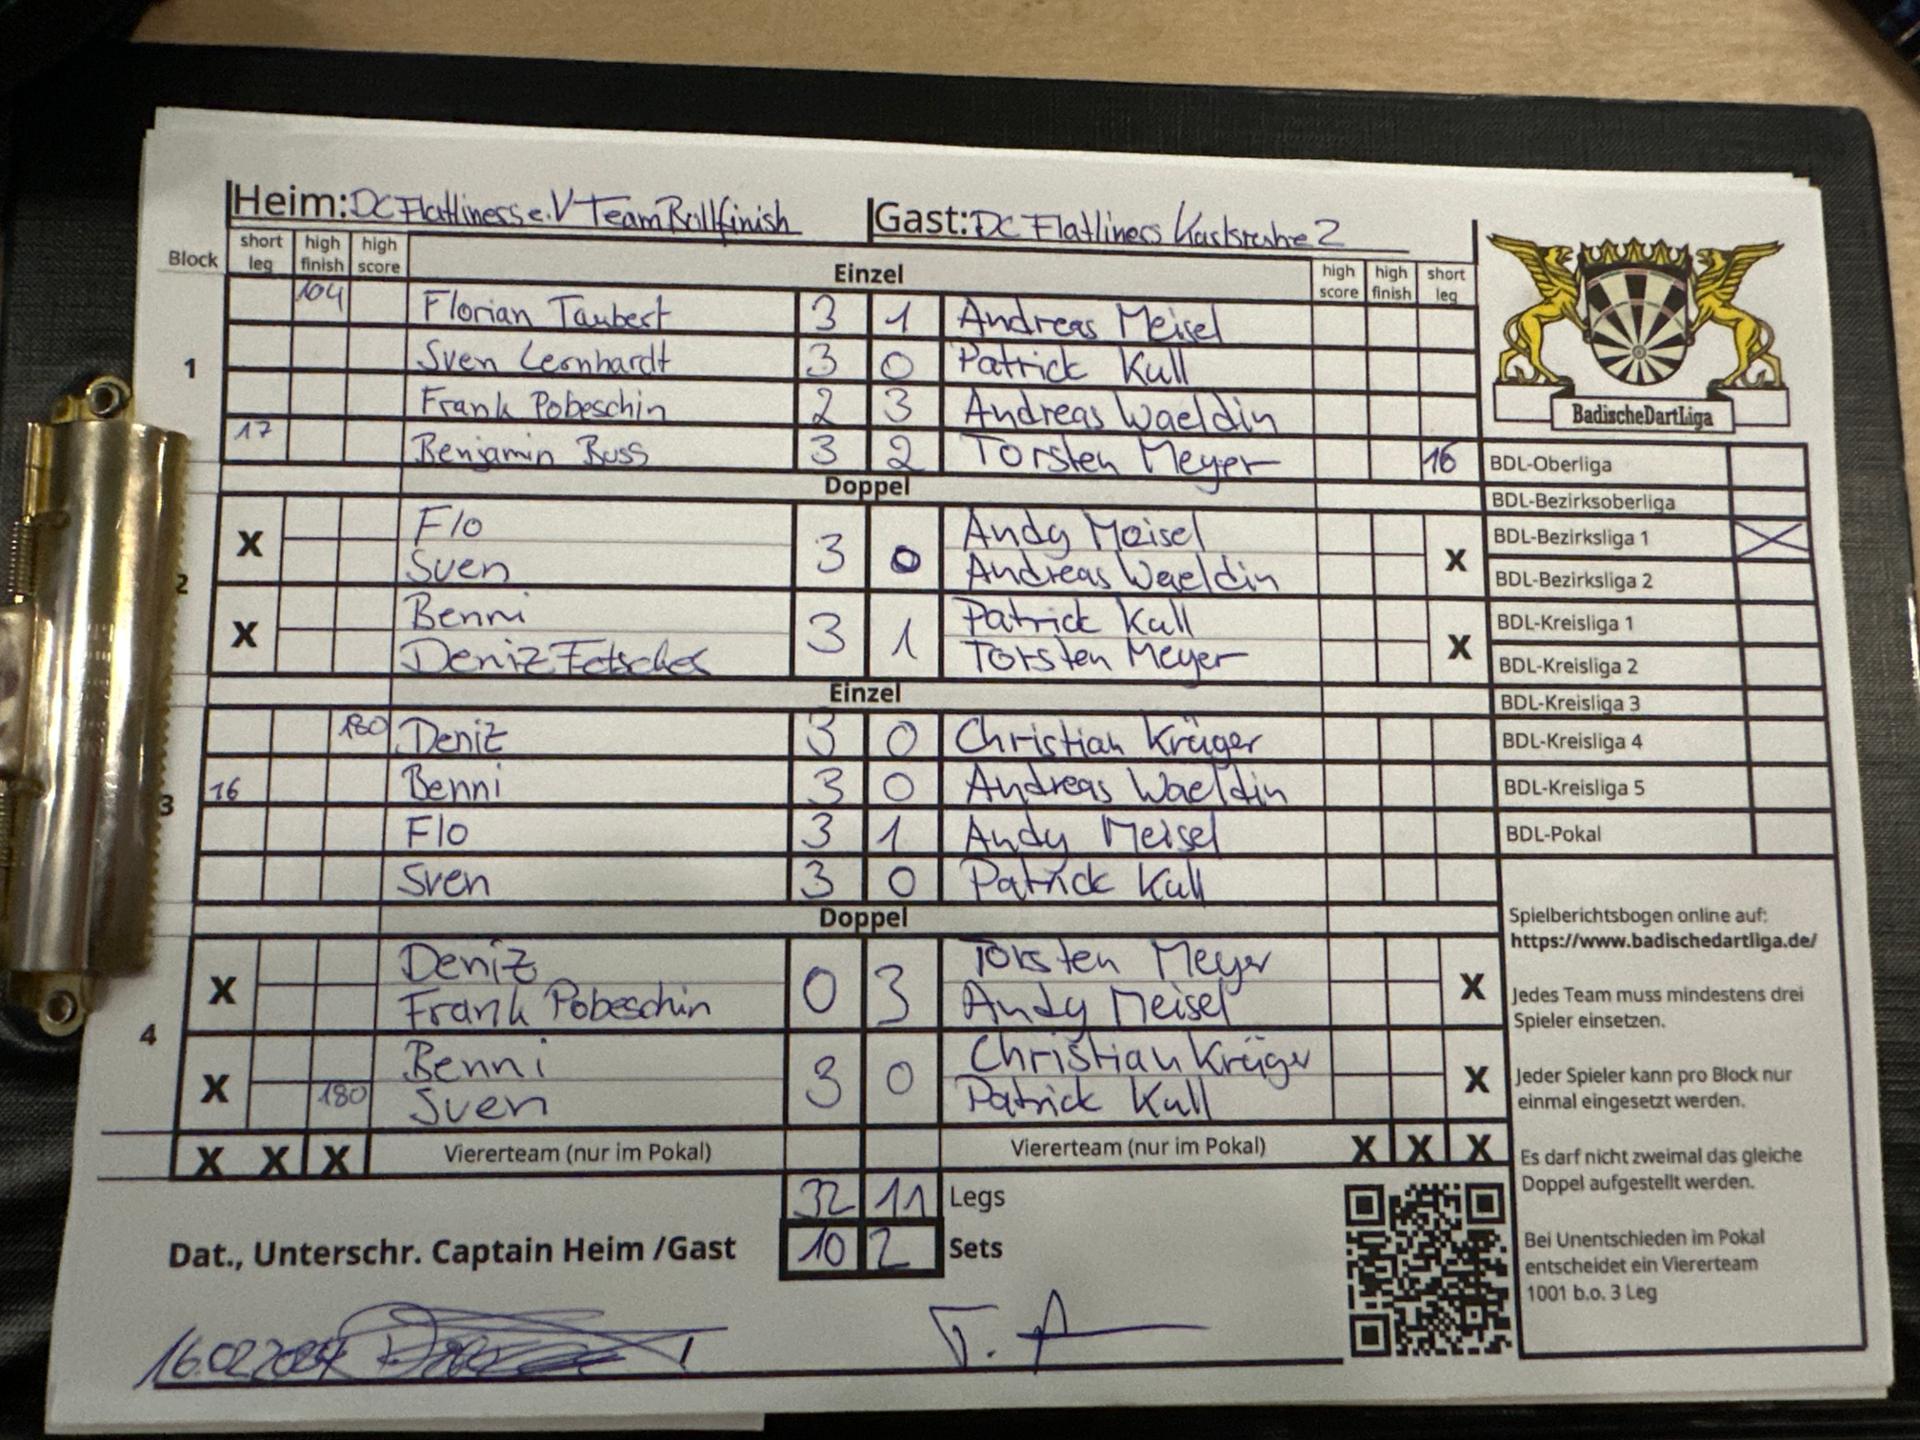 Heim: DC Flatliners e.V Team Bullfinish Gast: DC Flatliners Karlsruhe 2
Block short leg high finish high score Einzel high score high finish short leg
104 Florian Taubert 3 1 Andreas Meisel
1 Sven Leonhardt 3 0 Patrick Kull
Frank Pobeschin 2 3 Andreas Waeldin
17 Benjamin Buss 3 2 Torsten Meyer 16
Doppel
X Flo 3 0 Andy Meisel X
Sven Andreas Waeldin
2
X Benni 3 1 Patrick Kull X
Deniz Torsten Meyer
Einzel
180 Deniz 3 0 Christian Krüger
16 Benni 3 0 Andreas Waeldin
3
Flo 3 1 Andy Meisel
Sven 3 0 Patrick Kull
Doppel
X Deniz 0 3 Torsten Meyer X
Frank Pobeschin Andy Meisel
4
X Benni 3 0 Christian Krüger X
180 Sven Patrick Kull
X X X Viererteam (nur im Pokal) Viererteam (nur im Pokal) X X X
32 11 Legs
Dat., Unterschr. Captain Heim /Gast 10 2 Sets
BadischeDartLiga
BDL-Oberliga
BDL-Bezirksoberliga
BDL-Bezirksliga 1 X
BDL-Bezirksliga 2
BDL-Kreisliga 1
BDL-Kreisliga 2
BDL-Kreisliga 3
BDL-Kreisliga 4
BDL-Kreisliga 5
BDL-Pokal
Spielberichtsbogen online auf:
https://www.badischedartliga.de/
Jedes Team muss mindestens drei
Spieler einsetzen.
Jeder Spieler kann pro Block nur
einmal eingesetzt werden.
Es darf nicht zweimal das gleiche
Doppel aufgestellt werden.
Bei Unentschieden im Pokal
entscheidet ein Viererteam
1001 b.o. 3 Leg